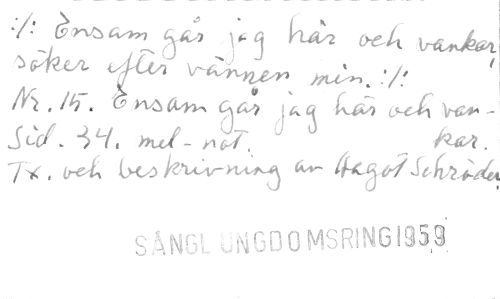 :/: Ensam går jag här och vankar,
söker efter vännen min. :/:
Nr. 15. Ensam går jag här och van-
kar.
Sid. 34. mel-not.
Tx. och beskrivning av Hagot Schröder.
SÅNGL UNGDOMSRING 1959